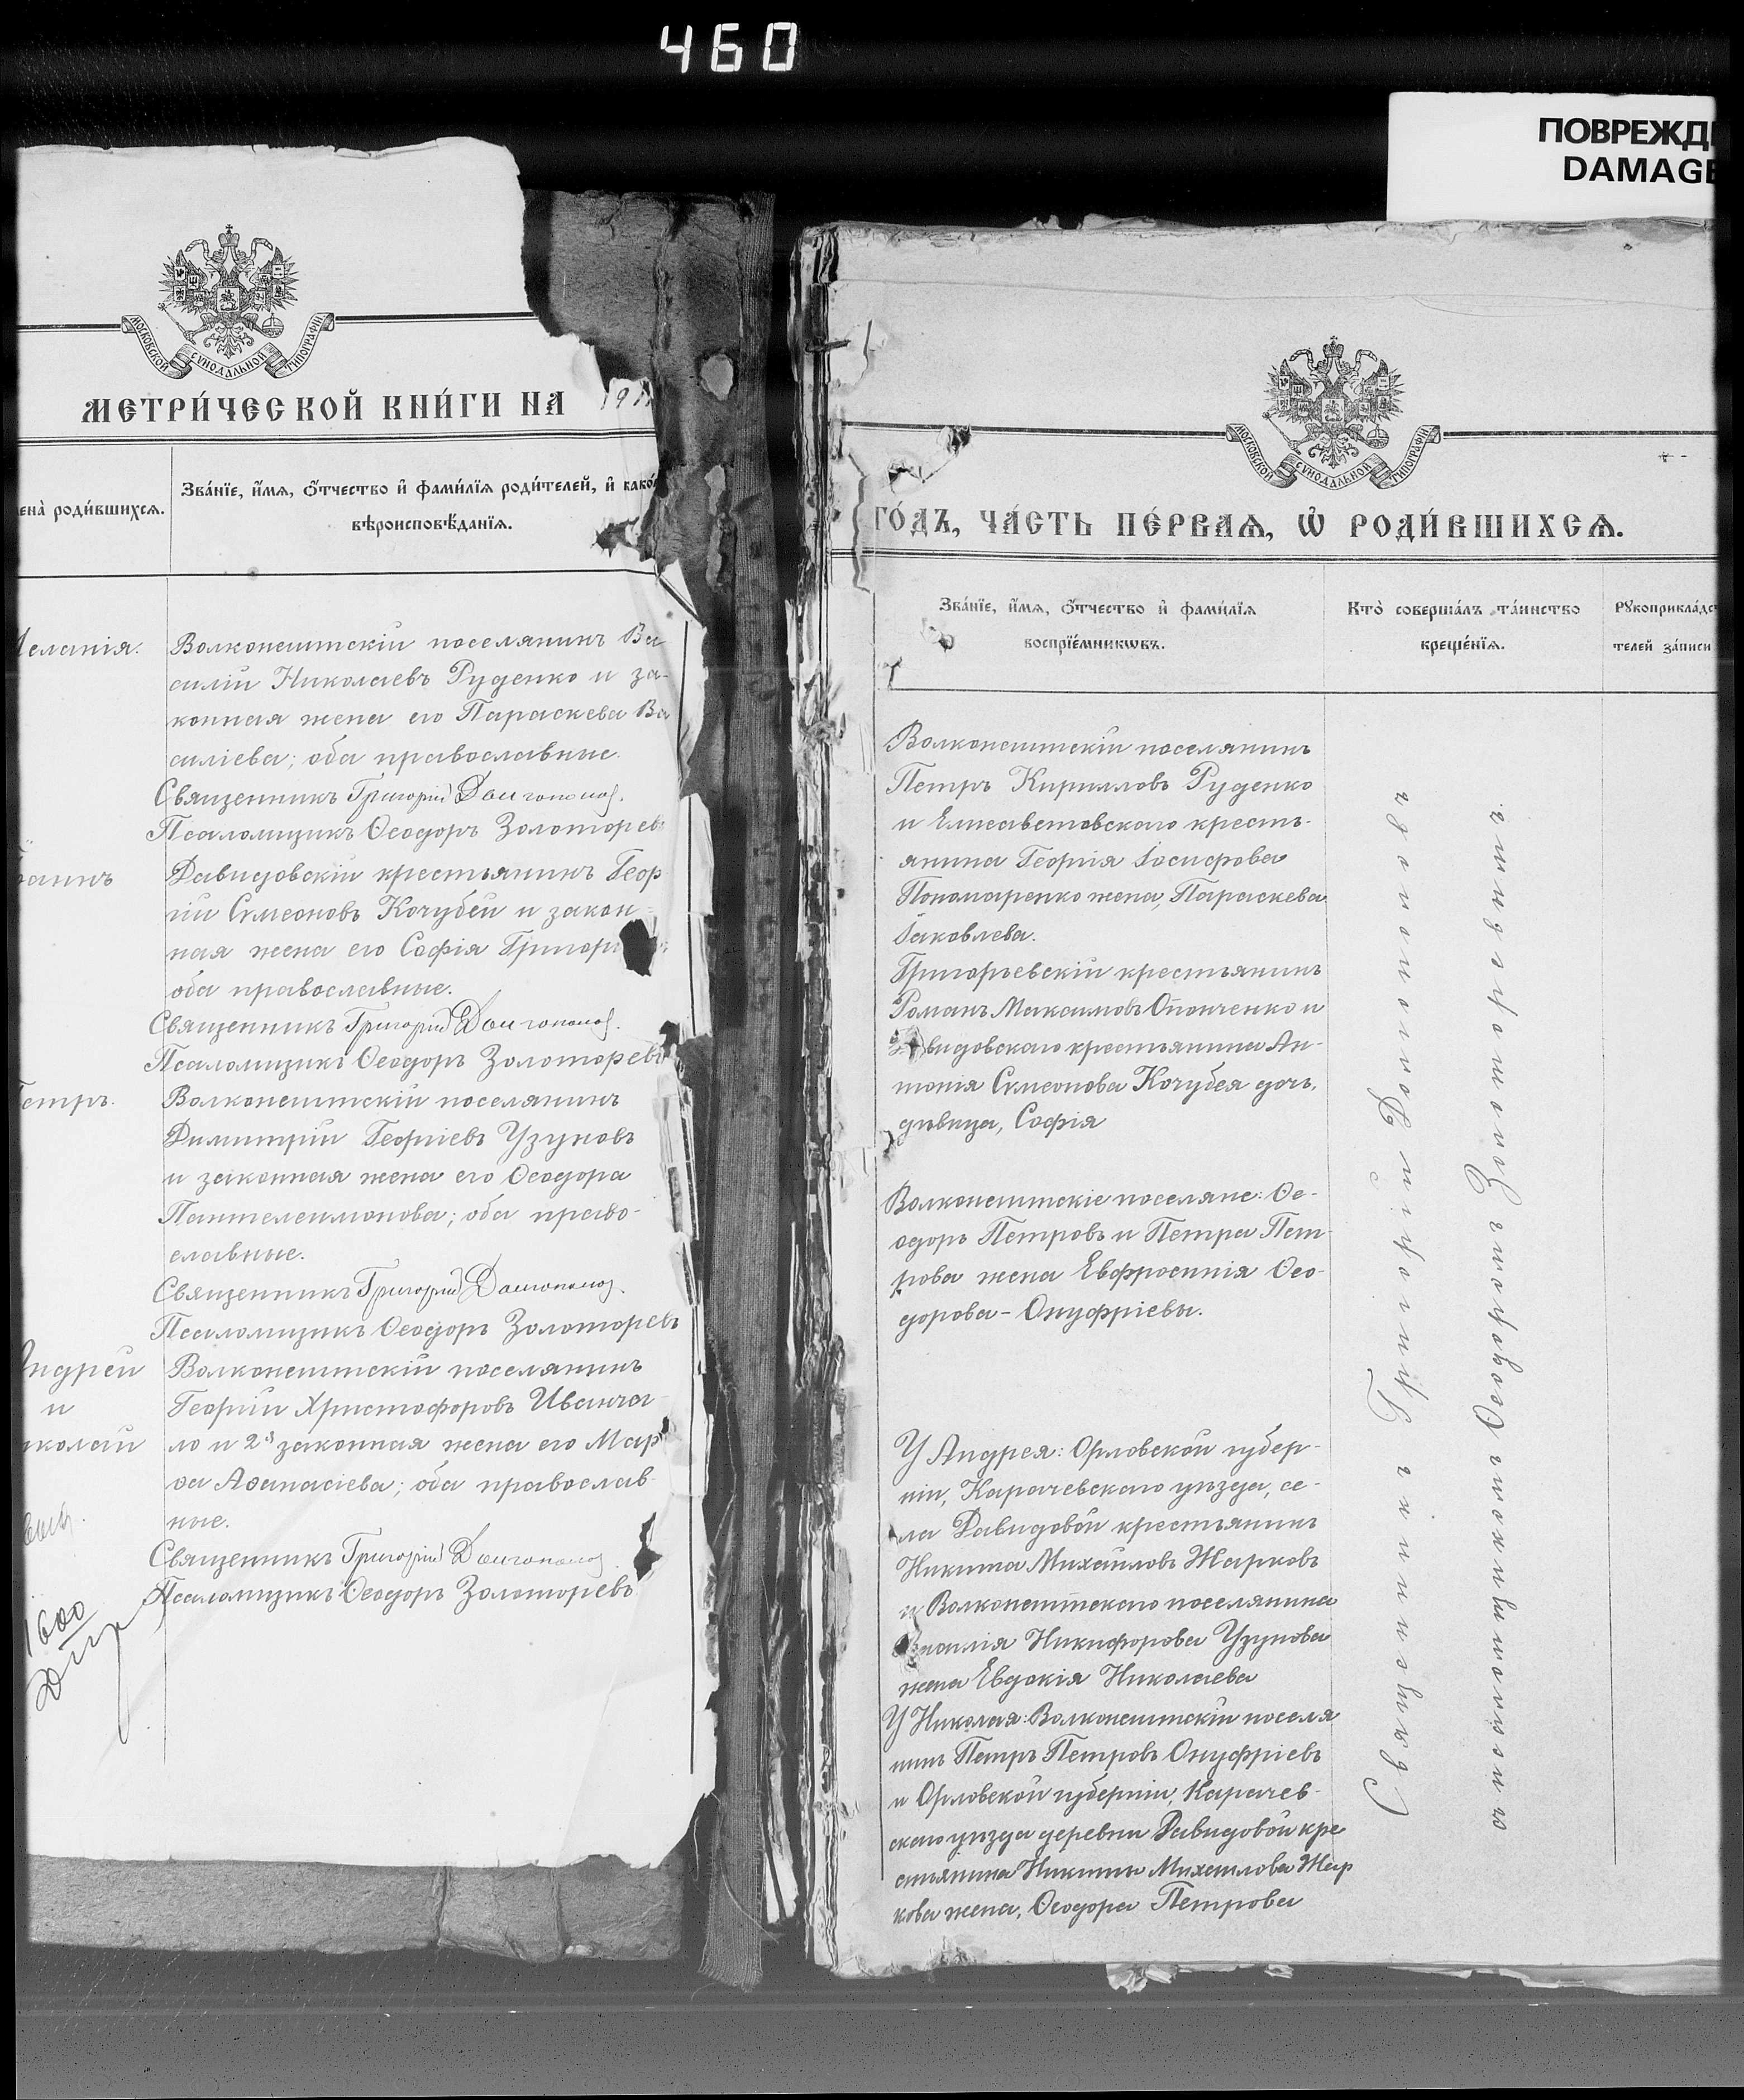 460
ПОВРЕЖД
DAMAGE
МОСКОВСКОЙ СУНОДАЛЬНОЙ ТИПОГРАФІИ
МЕТРИ́ЧЕСКОЙ КНИ́ГИ НА 191
ена̀ роди́вшихсѧ.
Зва́нїе, и҆́мѧ, ѻ҆́тчество и҆ фами́лїѧ роди́телей, и҆ како́
вѣроисповѣ́данїѧ.
еланія.
Волконештскій поселянинъ Ва
силій Николаевъ Руденко и за-
конная жена его Параскева Ва
силіева; оба православные.
Священникъ Григорій Долгополов.
Псаломщикъ Ѳеодоръ Золоторевъ
оаннъ
Давидовскій крестьянинъ Геор
гій Сѵмеоновъ Кочубей и закон-
ная жена его Софія Григорі
оба православные.
Священникъ Григорій Долгополов.
Псаломщикъ Ѳеодоръ Золоторевъ
етръ.
Волконештскій поселянинъ
Димитрій Георгіевъ Узуновъ
и законная жена его Ѳеодора
Пантелеимонова; оба право-
славные.
Священникъ Григорій Долгополов.
Псаломщикъ Ѳеодоръ Золоторевъ
Андрей
и
иколай
Волконештскій поселянинъ
Георгій Христофоровъ Иванча-
ло и 2я законная жена его Мар
ѳа Аѳанасіева; оба православ-
ные.
Священникъ Григорій Долгополов.
Псаломщикъ Ѳеодоръ Золоторевъ
1600
МОСКОВСКОЙ СУНОДАЛЬНОЙ ТИПОГРАФІИ
ГО́ДЪ, ЧА́СТЬ ПЕ́РВАѦ, Ѡ҆ РОДИ́ВШИХСѦ.
Зва́нїе, и҆́мѧ, ѻ҆́тчество и҆ фами́лїѧ
воспрїе́мникѡвъ.
Кто̀ соверша́лъ та́инство
креще́нїѧ.
Рꙋкоприкла́дс
телей за́писи
Волконештскій поселянинъ
Петръ Кирилловъ Руденко
и Елисаветовскаго кресть-
янина Георгія Іосифова
Пономаренко жена, Параскева
Іаковлева.
Григорьевскій крестьянинъ
Романъ Максимовъ Опонченко и
Давидовскаго крестьянина Ан-
тонія Сѵмеонова Кочубея дочь,
дѣвица, Софія
Волконештскіе поселяне: Ѳе-
одоръ Петровъ и Петра Пет-
рова жена Евфросинія Ѳео-
дорова - Онуфріевы.
У Андрея: Орловской губер-
ніи, Карачевскаго уѣзда, се-
ла Давидовой крестьянинъ
Никита Михайловъ Жарковъ
и Волконештскаго поселянина
Василія Никифорова Узунова
жена Евдокія Николаева
У Николая: Волконештскій поселя
нинъ Петръ Петровъ Онуфріевъ
и Орловской губерніи, Карачев-
скаго уѣзда деревни Давидовой кре
стьянина Никиты Михаилова Жар
кова жена, Ѳеодора Петрова
Священникъ Григорій Долгополовъ
съ псаломщикомъ Ѳеодоромъ Золоторевымъ.